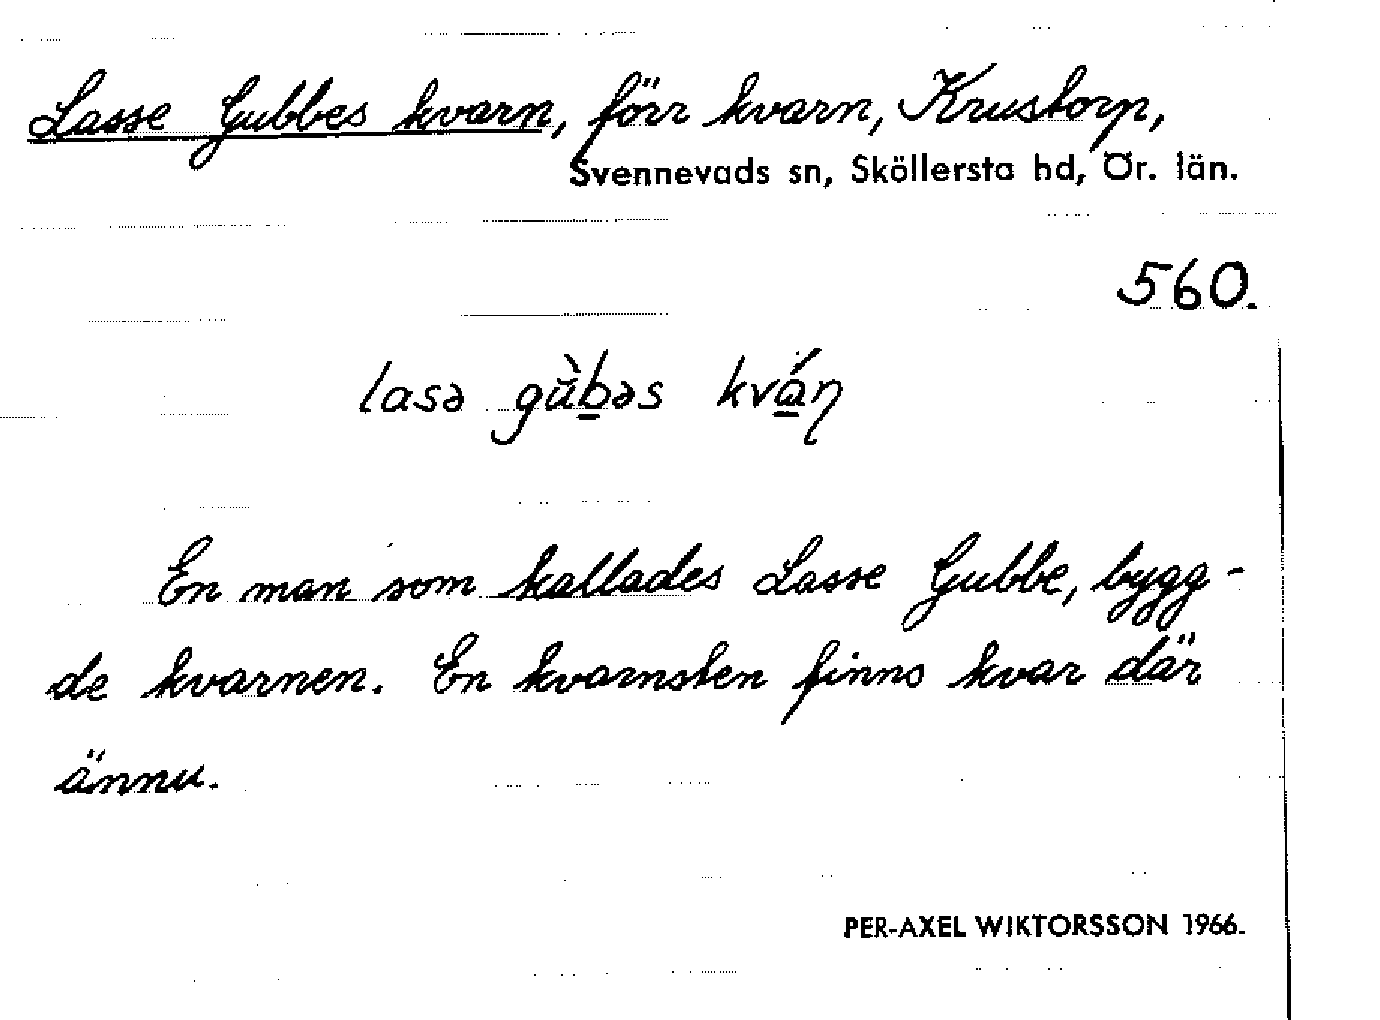 Lasse Gubbes kvarn, förr kvarn, Krustorp,
Svennevads sn, Sköllersta hd, Ör. län.
560.
lasə gùb̲əs kvá̲ɳ
En man som kallades Lasse Gubbe, bygg-
de kvarnen. En kvarnsten finns kvar där
ännu.
PER-AXEL WIKTORSSON 1966.